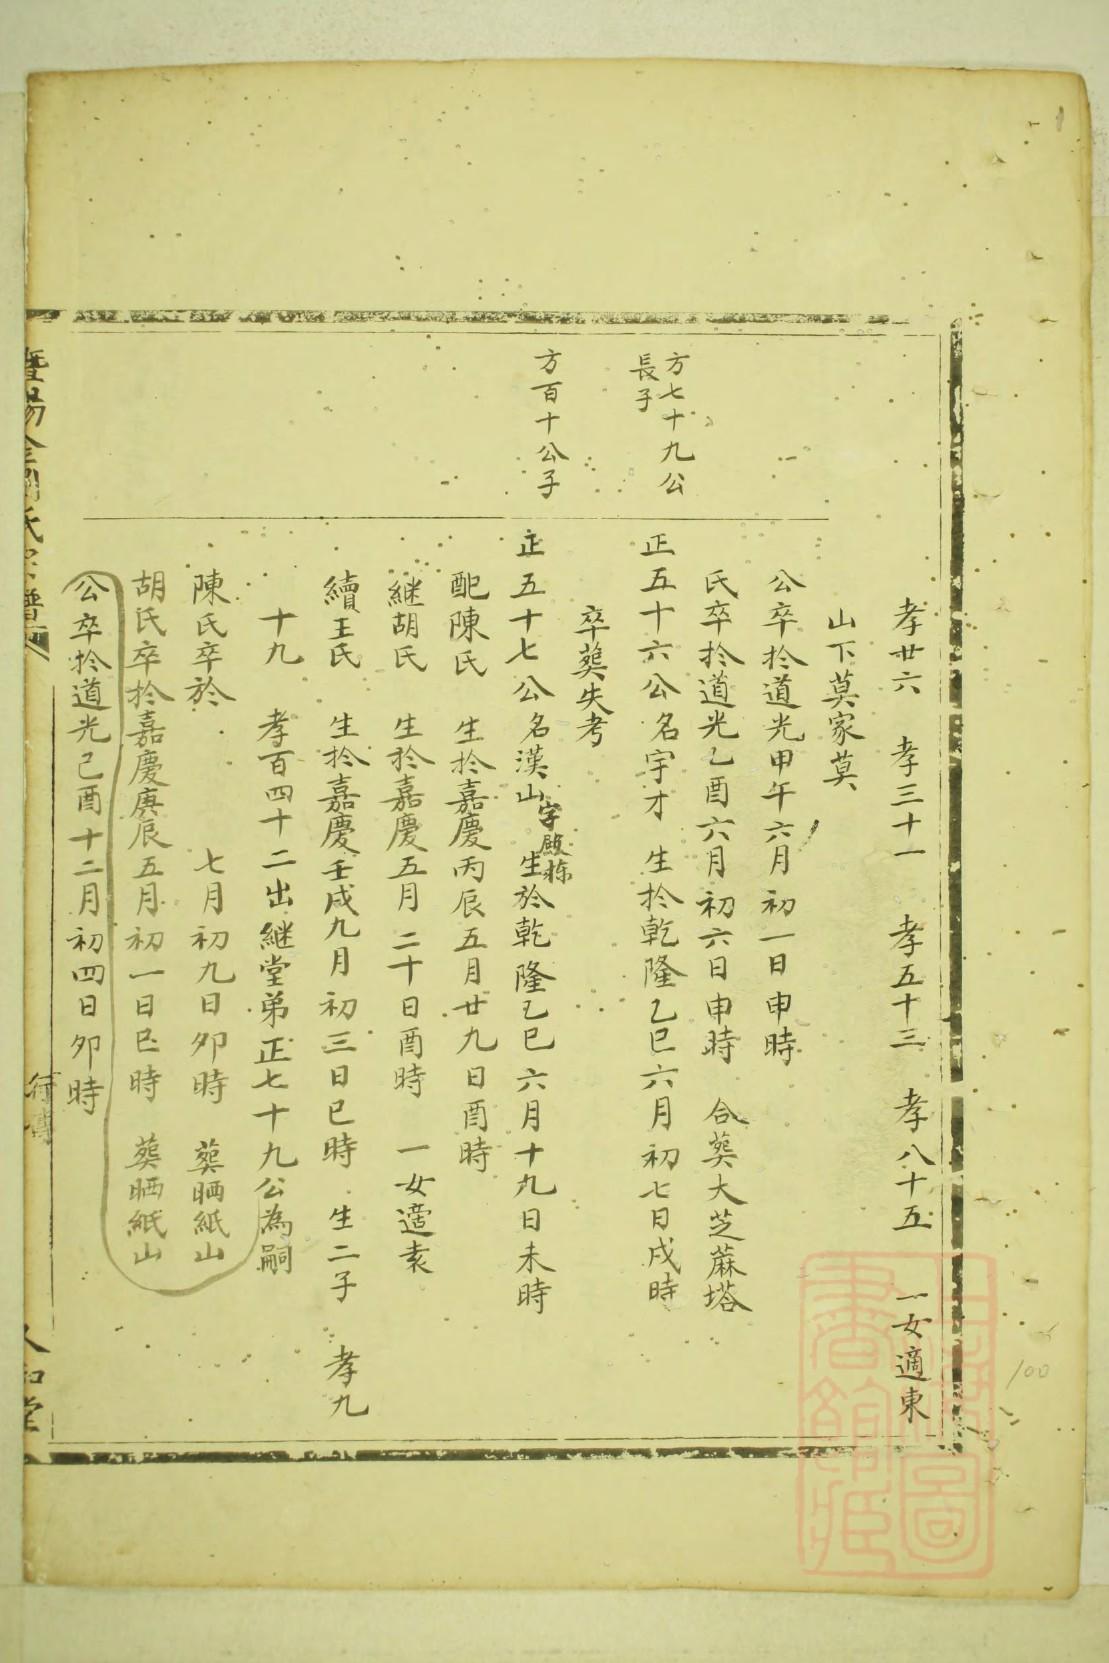 孝廿六 孝三十一 孝五十三 孝八十五 一女適東
山下莫家莫
公卒扵道光甲午六月初一日申時
氏卒扵道光乙酉六月初六日申時 合葬大芝蔴塔
方七十九公
長子
正五十六公名宇才 生扵乾隆乙巳六月初七日戌時
卒葬失考
方百十公子
正五十七公名漢山 字殿栋 生於乾隆乙巳六月十九日未時
配陳氏 生扵嘉慶丙辰五月廿九日酉時
継胡氏 生扵嘉慶五月二十日酉時 一女適袁
續王氏 生扵嘉慶壬戌九月初三日巳時 生二子 孝九
十九 孝百四十二出継堂弟正七十九公為嗣
陳氏卒於 七月初九日卯時 葬晒紙山
胡氏卒扵嘉慶庚辰五月初一日巳時 葬晒紙山
公卒扵道光己酉十二月初四日卯時
行傳
上海圖
書館藏
100